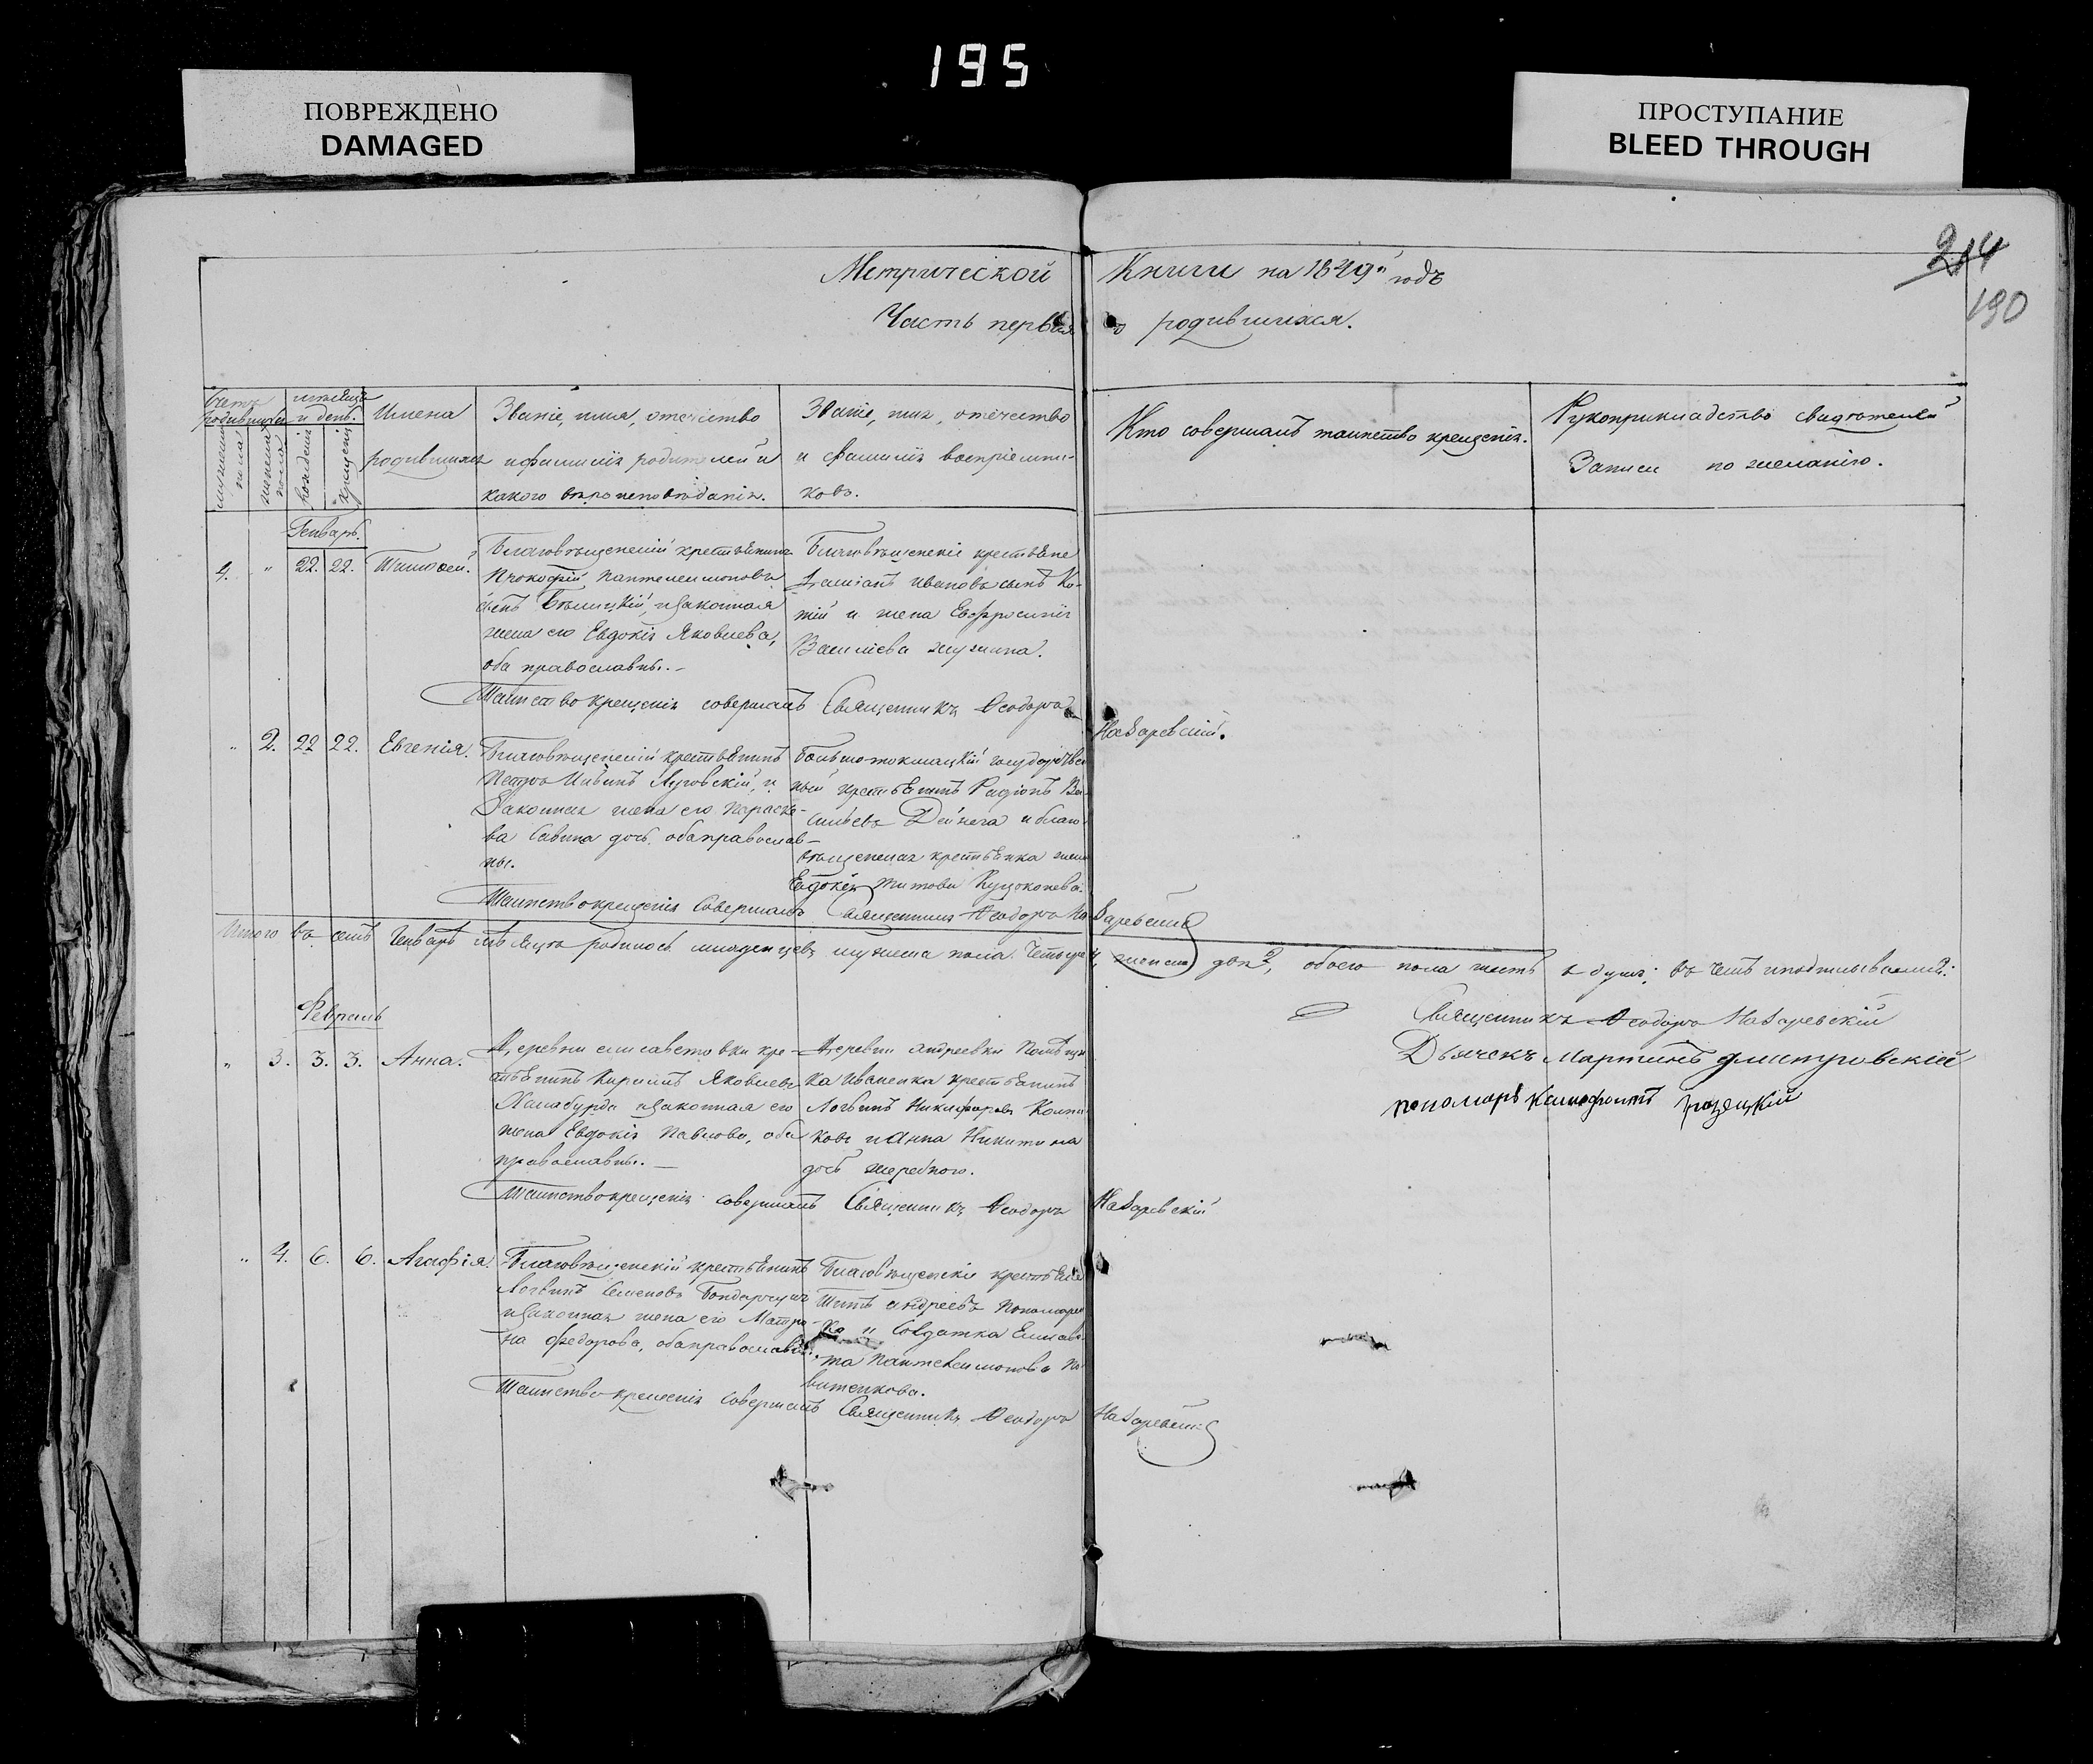 195
ПОВРЕЖДЕНО
DAMAGED
ПРОСТУПАНИЕ
BLEED THROUGH
214
190
Метрической Книги на 1849й годъ
Часть первая о родившихся.
Счетъ родившихся
мужеска пола
женска пола
мѣсяцъ и день.
рожденія
крещенія
Имена родившихся
Званіе, имя, отечество
и фамилія родителей и
какого вѣроисповѣданія.
Званіе, имя, отечество
и фамилія воспріемни-
ковъ.
Кто совершалъ таинство крещенія.
Рукоприкладство свидѣтелей
Записи по желанію.
Генварь.
4. " 22. 22. Тимофей.
Благовѣщенскій крестьянинъ
Прокофій Пантелеимоновъ
сынъ Бѣлицкій, и законная
жена его Евдокія Яковлева,
оба православны.
Благовѣщенскіе крестьяне
Даміанъ Ивановъ сынъ Ко-
жена Евфросинія
Василіева
Таинство крещенія совершалъ Священникъ Ѳеодоръ Назаревскій.
" 2. 22 22. Евгенія.
Благовѣщенскій крестьянинъ
Петръ и
Законная жена его Параске-
ва Савина дочь, оба православ-
ны.
Большетокмацкій государствен
ный крестьянинъ Родіонъ Ва-
сильевъ Дейнега и благо-
вѣщенская крестьянка жена
Евдокія Титова
Таинство крещенія Совершалъ Священникъ Ѳеодоръ Назаревскій
Итого въ семъ Генварѣ мѣсяцѣ родилось младенцевъ мужеска пола четыре 4, женска две 2, обоего пола шесть 6 душъ; въ чемъ и подписываемся:
Священникъ Ѳеодоръ Назаревскій
Дьячекъ Мартинъ Дмитровскій
пономарь
Февраль
" 3. 3. 3. Анна.
Деревни Елисаветовки кре-
стьянинъ Кириллъ Яковлевъ
Халабурда и законная его
жена Евдокія Павлова, оба
православны.
Деревни Андреевки Помѣщи
ка Иваненка крестьянинъ
Логвинъ Никифоровъ
ковъ и Анна Никитина
дочь
Таинство крещенія совершалъ Священникъ Ѳеодоръ Назаревскій
" 4. 6. 6. Агафія.
Благовѣщенскій крестьянинъ
Логвинъ Семеновъ Бондарчукъ
и законная жена его Матро-
на Федорова, оба православны.
Благовѣщенскіе крестьяне
Титъ Андреевъ Пономарен
ко и Солдатка Елисаве-
та Пантелеимонова
Таинство крещенія совершалъ Священникъ Ѳеодоръ Назаревскій